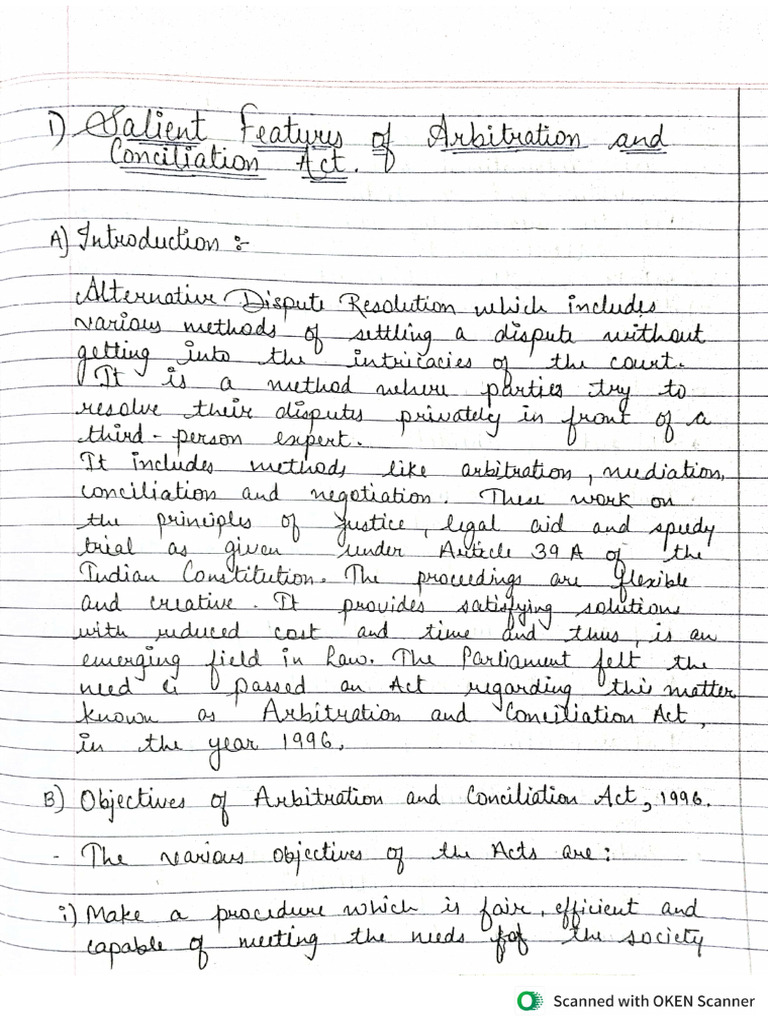 1) Salient Features of Arbitration and
Conciliation Act.
A) Introduction :-
Alternative Dispute Resolution which includes
various methods of settling a dispute without
getting into the intricacies of the court.
It is a method where parties try to
resolve their disputes privately in front of a
third-person expert.
It includes methods like arbitration, mediation,
conciliation and negotiation. These work on
the principles of justice, legal aid and speedy
trial as given under Article 39A of the
Indian Constitution. The proceedings are flexible
and creative. It provides satisfying solutions
with reduced cost and time and thus, is an
emerging field in Law. The Parliament felt the
need & passed an Act regarding this matter
known as Arbitration and Conciliation Act,
in the year 1996.
B) Objectives of Arbitration and Conciliation Act, 1996.
- The various objectives of the Acts are:
i) Make a procedure which is fair, efficient and
capable of meeting the needs of the society
Scanned with OKEN Scanner